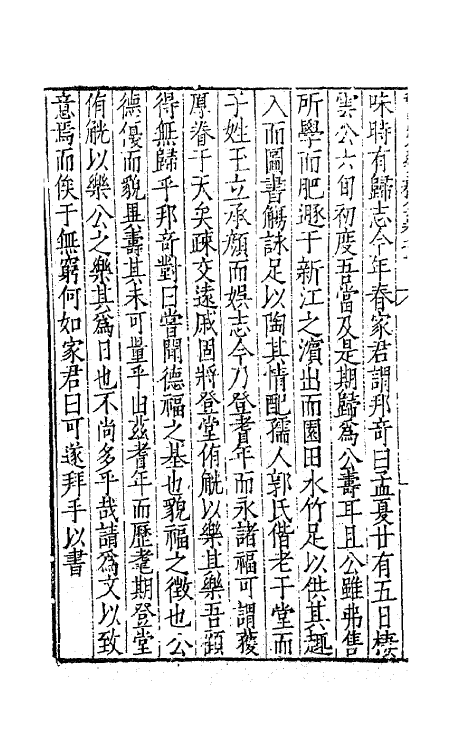 味時有歸志今年春家君謂邦竒曰孟夏廿有五日棲
雲公六旬初度吾當及是期歸為公壽耳且公雖弗售
所學而肥遯于新江之濵出而園田水竹足以供其趣
入而圖書觴詠足以陶其情配孺人郭氏偕老于堂而
子姓王立承顔而娯志今乃登耆年而永諸福可謂獲
厚眷于天矣疎文遠戚固將登堂侑觥以樂其樂吾顧
得無歸乎邦竒對曰嘗聞德福之基也貌福之徵也公
德優而貌異壽其未可量乎由兹耆年而歷耄期登堂
侑觥以樂公之樂其為日也不尚多乎哉請為文以致
意焉而俟于無窮何如家君曰可遂拜手以書